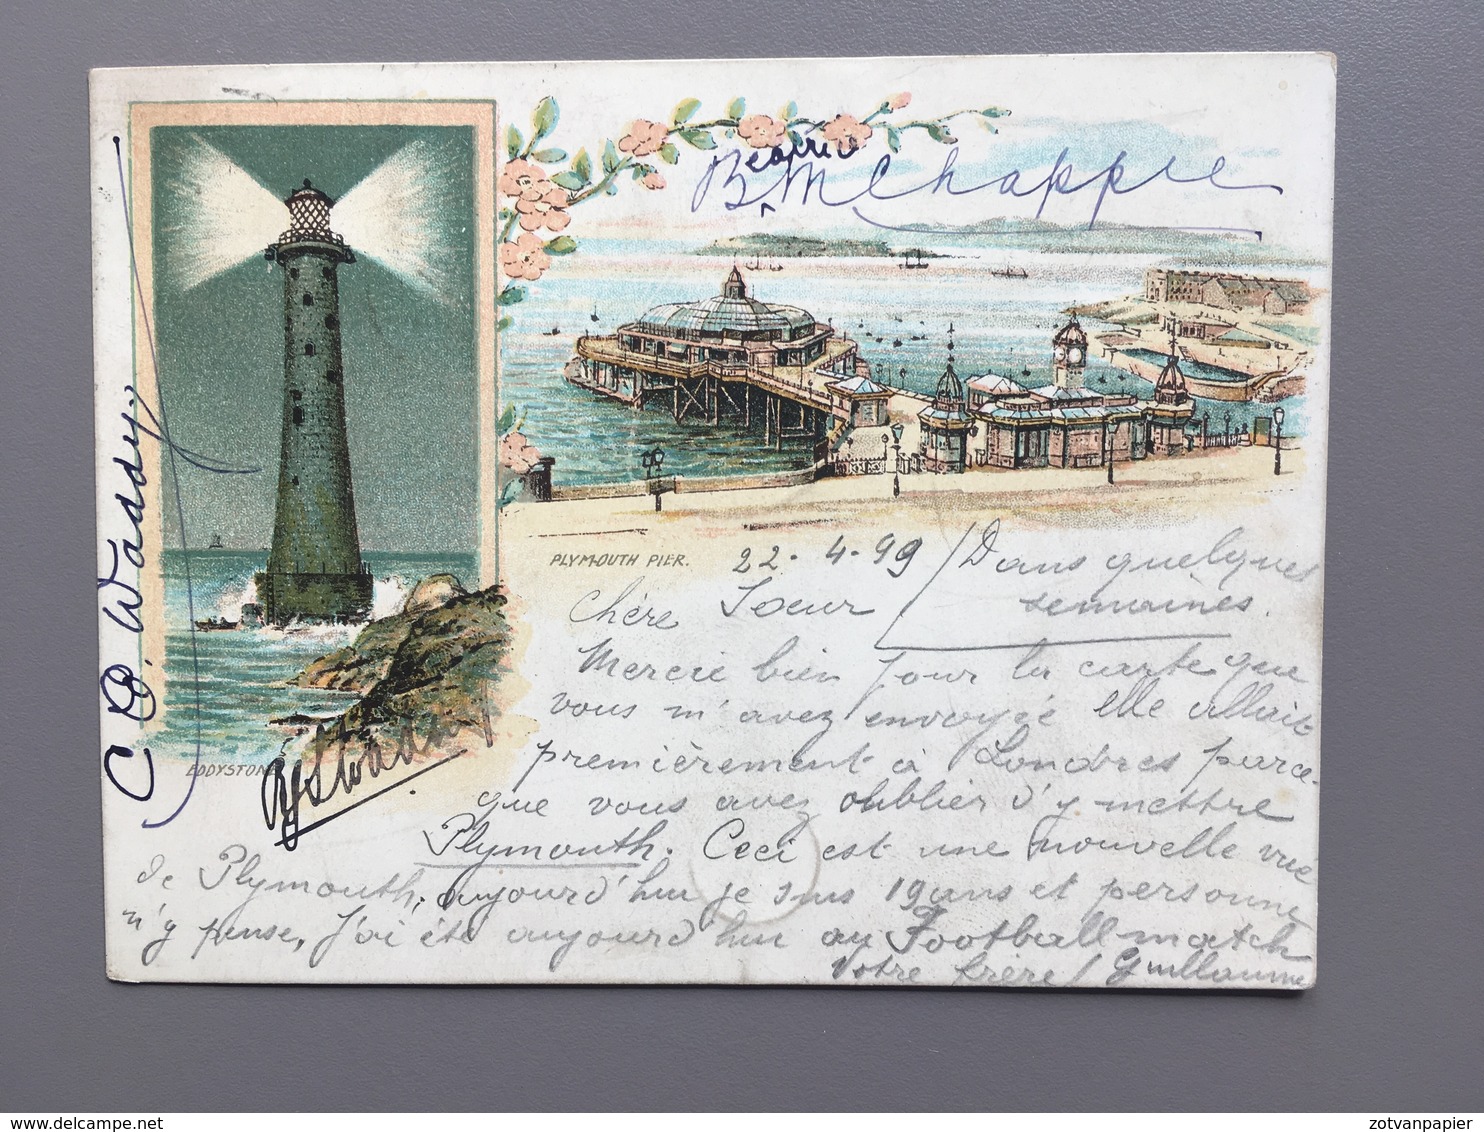 Beatrice M Chappie
C D. Waddy.
EDDYSTONE
PLYMOUTH PIER.
22-4-99 / Dans quelques
semaines.
Chère Soeur
Mercie bien pour la carte que
vous m'avez envoyée elle allait
premièrement à Londres parce-
que vous avez oublier d'y mettre
Plymouth. Ceci est une nouvelle vue
de Plymouth, aujourd'hui je suis 19 ans et personne
n'y pense, J'ai été aujourd'hui au Football match
Votre frère / Guillaume
www.delcampe.net
zotvanpapier